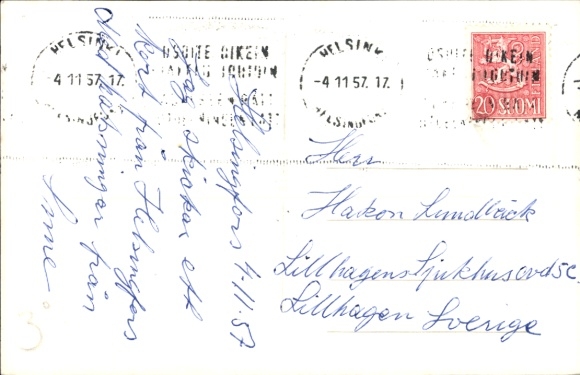 HELSINKI
-4 11 57. 17.
HELSINGFORS
OSOITE OIKEIN
HELSINKI
-4 11 57. 17.
HELSINGFORS
OSOITE OIKEIN
20 SUOMI
Helsingfors 4.11.57
Jag skickar ett
kort från Helsingfors
Med hälsningar från
Herr
Hakon Lundbäck
Lillhagens Sjukhus avd 5C
Lillhagen Sverige